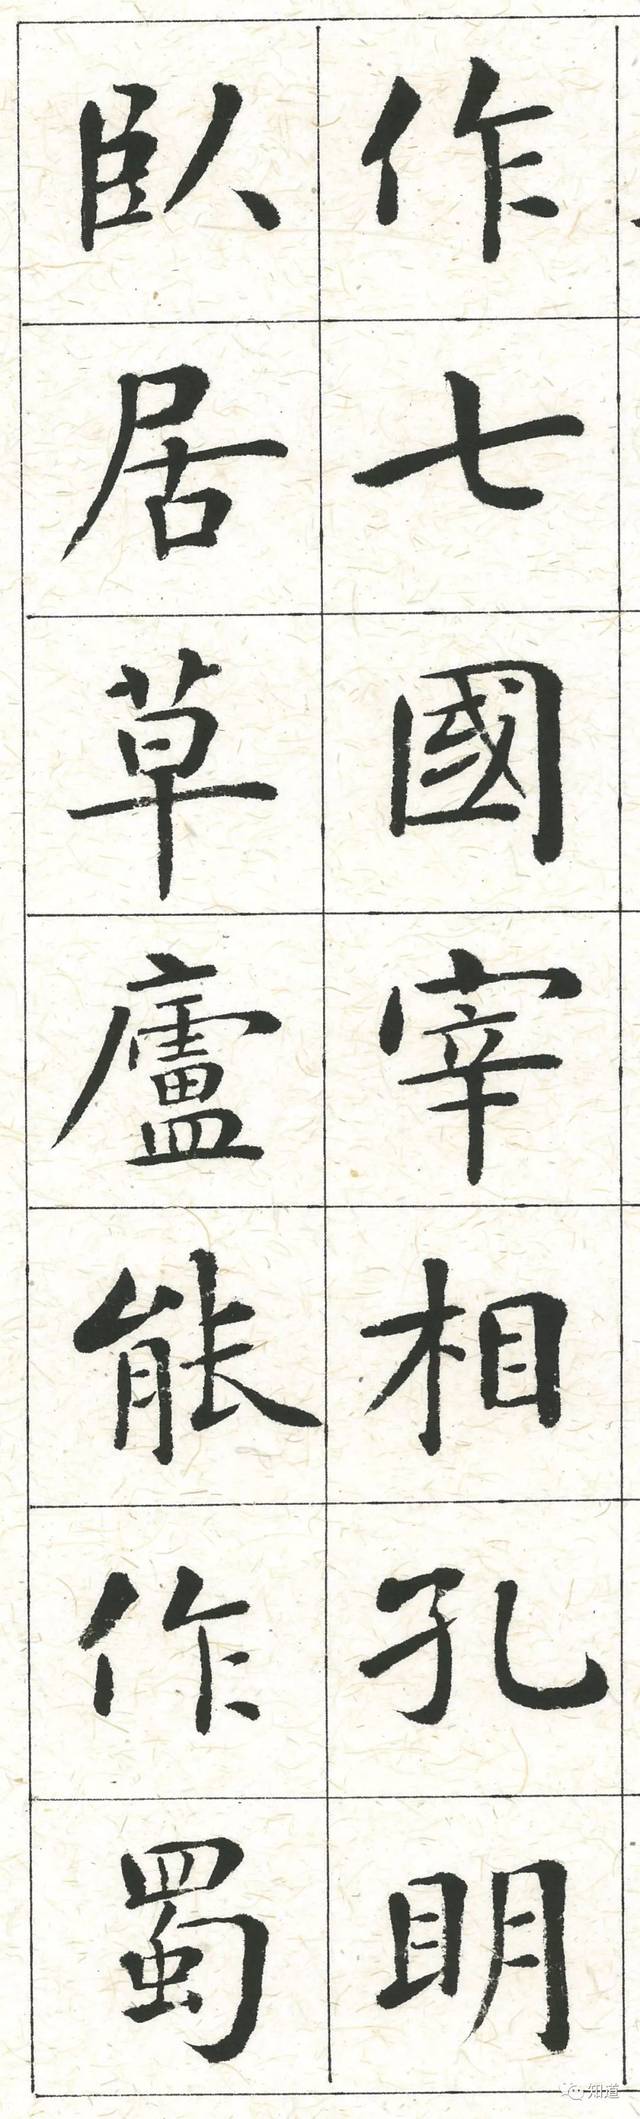 作七國宰相孔明
臥居草廬能作蜀
知道